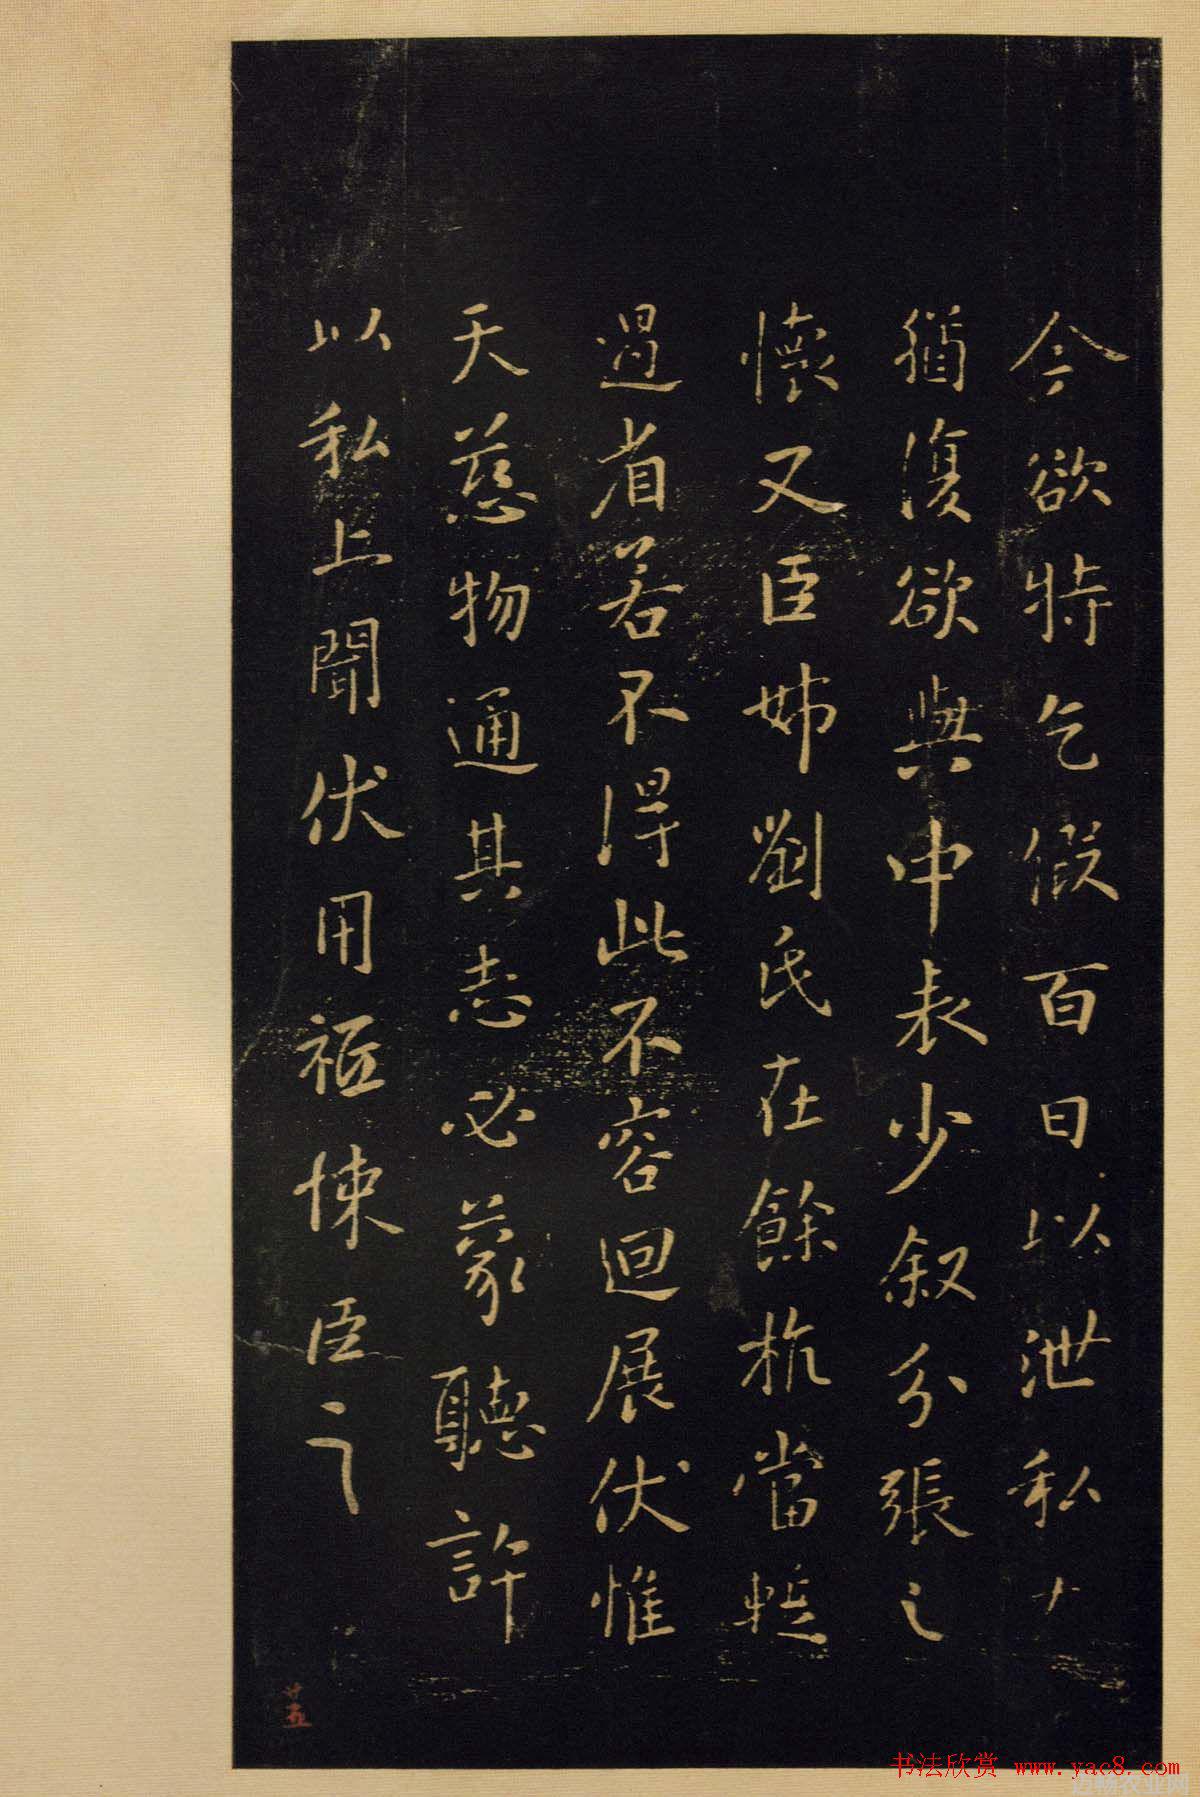 今欲特乞假百日以泄私
猶復欲與中表少叙分張之
懷又臣姊劉氏在餘杭當蹔
過省若不得此不容迴展伏惟
天慈物通其志必蒙聽許
以私上聞伏用祗悚臣之
书法欣赏 www.yac8.com
迈畅农业网